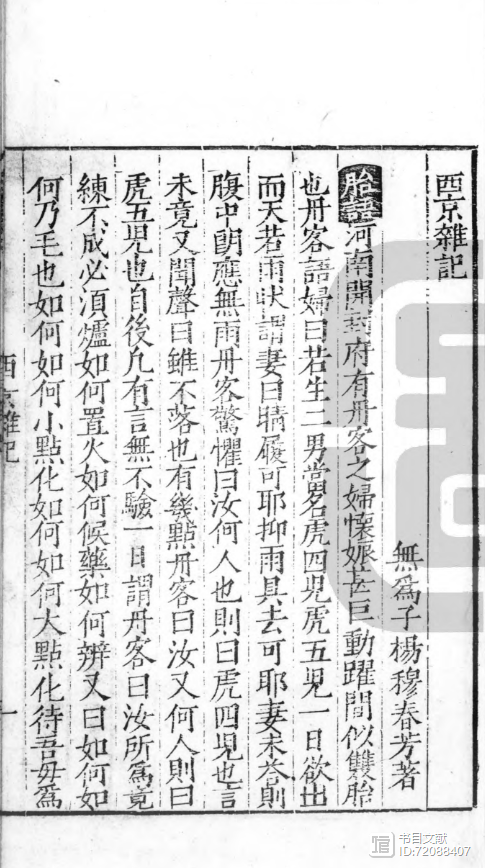 西京雜記
無爲子楊穆春芳著
胎語河南開封府有丹客之婦懷娠甚巨動躍間似雙胎
也丹客語婦曰若生二男當名虎四児虎五児一日欲出
而天若雨状謂妻曰晴履可耶抑雨具去可耶妻未荅則
腹中朗應無雨丹客驚懼曰汝何人也則曰虎四児也言
未竟又聞聲曰雖不落也有幾點丹客曰汝又何人則曰
虎五児也自後凢有言無不驗一日謂丹客曰汝所爲竟
練不成必湏爐如何置火如何候藥如何辨又曰如何如
何乃毛也如何如何小點化如何如何大點化待吾毋爲
西京雜記
一
书目文献
ID:72088407